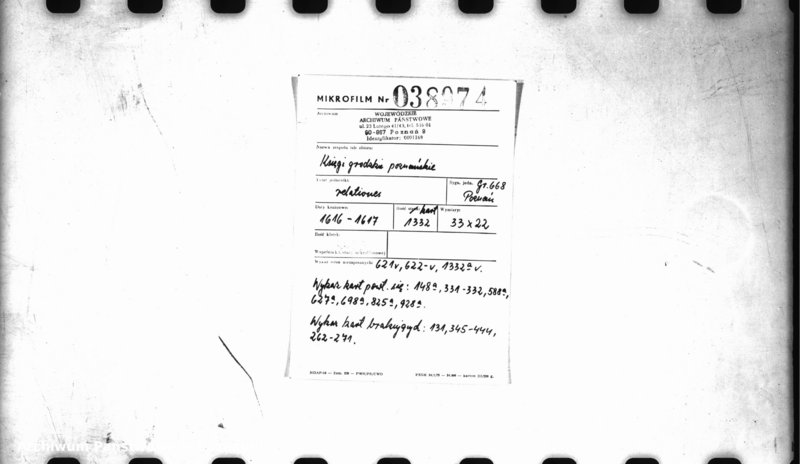 MIKROFILM Nr 038974
Archiwum
WOJEWÓDZKIE
ARCHIWUM PAŃSTWOWE
60-967 Poznań 9
Identyfikator: 0001169
Nazwa zespołu lub zbioru:
Księgi grodzkie poznańskie
Tytuł jednostki:
relationes
Sygn. jedn. Gr. 668
Poznań
Daty krańcowe:
1616 - 1617
Ilość kart
1332
Wymiary:
33 x 22
Ilość klatek:
621v, 622-v, 1332ª v.
Wykaz kart powt. się: 148ª, 331-332, 588ª,
627ª, 698ª, 825ª, 928ª.
Wykaz kart brakujących: 131, 345-444,
262-271.